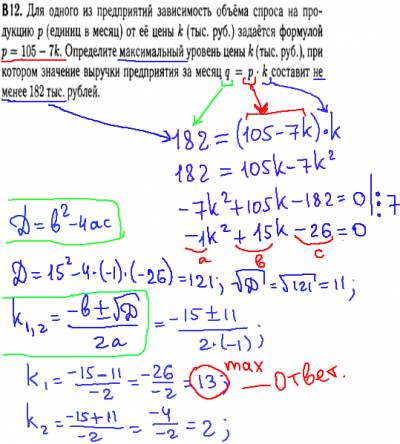 В12. Для одного из предприятий зависимость объёма спроса на про-
дукцию p (единиц в месяц) от её цены k (тыс. руб.) задаётся формулой
p = 105 – 7k. Определите максимальный уровень цены k (тыс. руб.), при
котором значение выручки предприятия за месяц q = p · k составит не
менее 182 тыс. рублей.
182 = (105-7k)·k
182 = 105k-7k²
-7k²+105k-182=0 |:7
-1k²+15k-26=0
a в c
D=в²-4ac
D=15²-4·(-1)·(-26)=121; √D=√121=11;
k₁,₂ = (-в±√D)/2a = (-15±11)/(2·(-1));
k₁ = (-15-11)/-2 = -26/-2 = 13; max — Ответ.
k₂ = (-15+11)/-2 = -4/-2 = 2;